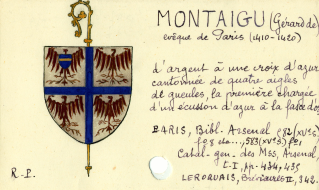 MONTAIGU (Gérard de)
évêque de Paris (1410-1420)
d'argent à une croix d'azur
cantonnée de quatre aigles
de gueules, la première chargée
d'un écusson d'azur à la fasce d'or
PARIS, Bibl. Arsenal
Catal. gen. des Mss, Arsenal,
t. I, pp. 434, 435
LEROQUAIS, Bréviaires II, 342.
R-P.